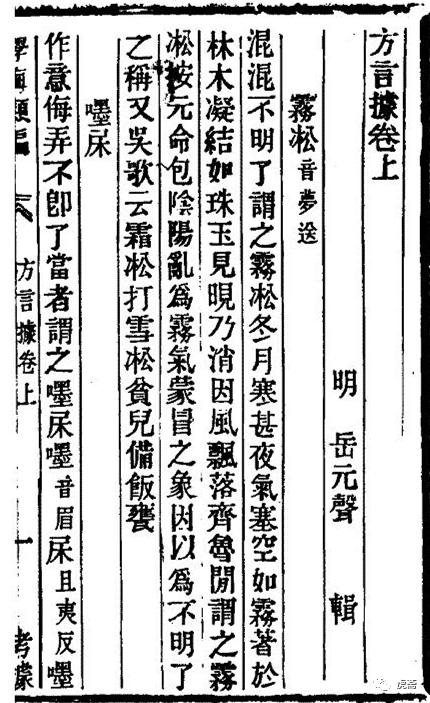 方言據卷上
明 岳元聲 輯
霧凇音夢送
混混不明了謂之霧凇冬月寒甚夜氣塞空如霧著於
林木凝結如珠玉見晛乃消因風飄落齊魯閒謂之霧
凇按元命包陰陽亂為霧氣蒙冒之象因以為不明了
之稱又吳歌云霜凇打雪凇貧兒備飯甕
嚜杘
作意侮弄不卽了當者謂之嚜杘嚜音眉杘且夷反嚜
學海類編 方言據卷上 一 考據
虎斋